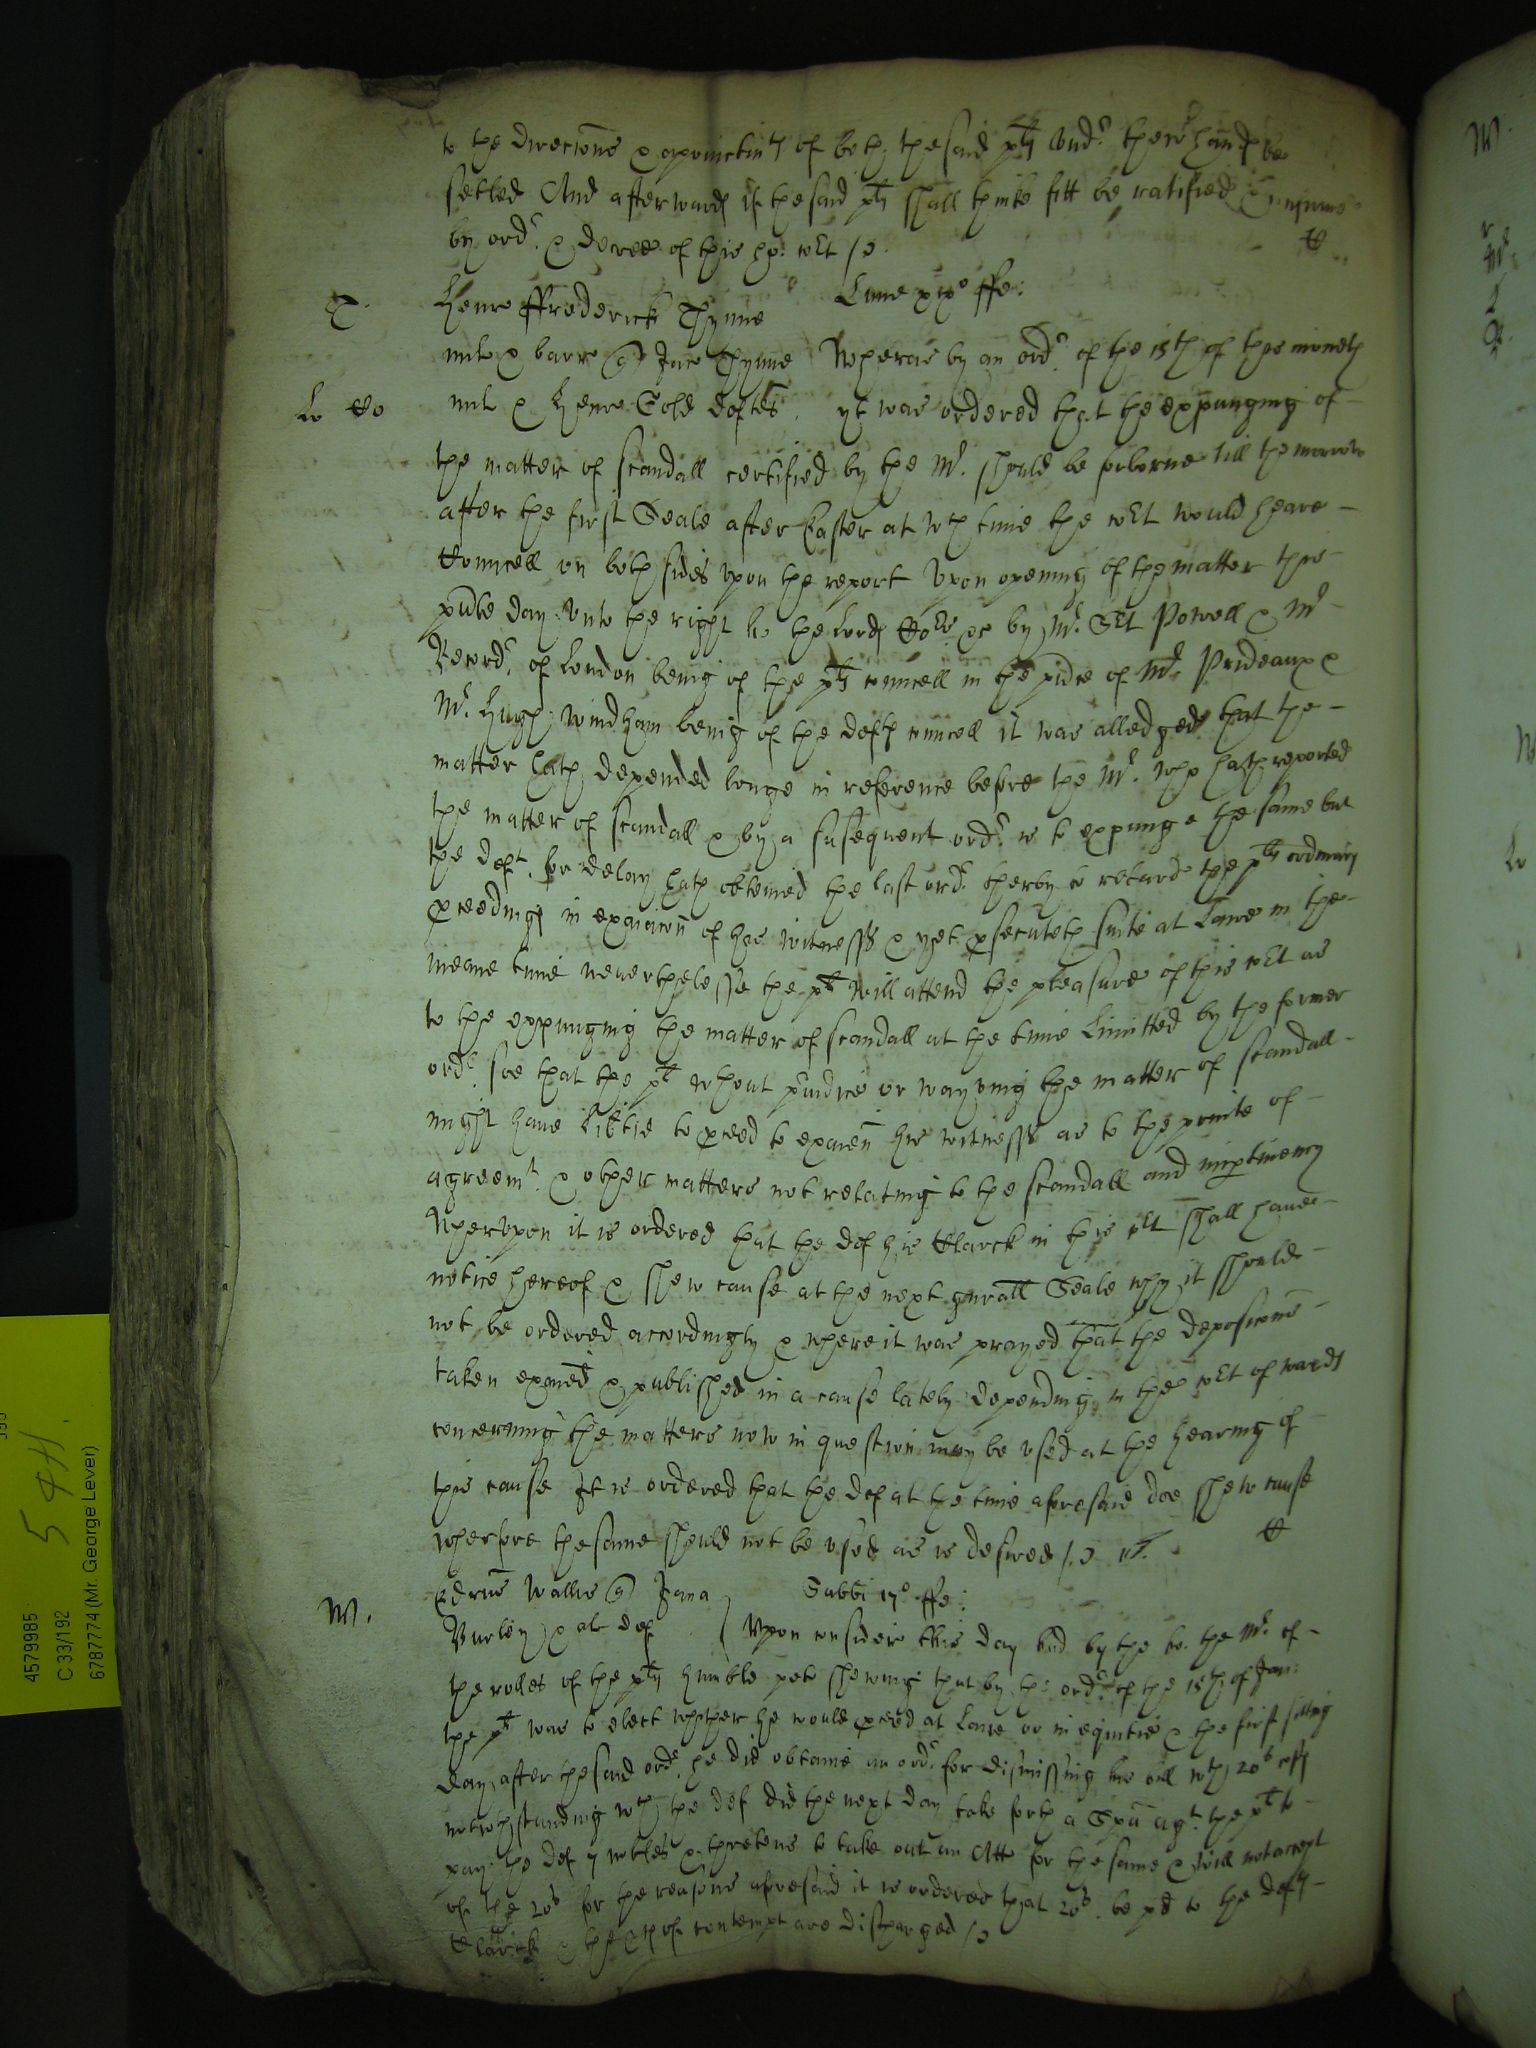 to the direccons & apointmts of both the said pts Vndr their hands be
setled And afterwards if the said pts shall thinke fitt be ratified & confirmed
by ordr & decree of this ho: Cot /
T. Henr ffrederick Thynne Lune xixo ffe:
mil & barr Jaco Thynne Wheras by an ordr of the 15th of this moneth
Lo Co mil & Henr Cole defts yt was ordered that the expunging of
the matter of scandall certified by the Mr should be forborne till the morrow
after the first Seale after Easter at wch time the cot would heare
Councell on both sides vpon the report Vpon opening of the matter this
pnte day vnto the right ho the Lords Cors &c by Mr Srt Powell & Mr
Recordr of London being of the pts councell in the pnce of Mr Prideaux &
Mr Hugh Windham being of the defts councell it was alledged that the
matter hath depended longe in reference before the Mr who hath reported
the matter of scandall & by a subsequent ordr is to expunge the same but
the deft for delay hath obteined the last ordr therby to retard the pts ordinary
proceedings in exaiacon of his witnesses & yet psecuteth suite at Lawe in the
meane time neverthelesse the pt will attend the pleasure of this cot as
to the expunging the matter of scandall at the time Limitted by the former
ordr soe that the pt wthout pjudice or wayving the matter of scandall
might have Libtie to pceed to examen his witnesses as to the pointe of
agreemt & other matters not relating to the scandall and imptinency
Whervpon it is ordered that the def his Clarck in this cot shall have
notice hereof & shew cause at the next gnrall Seale why it should
not be ordered accordingly & where it was prayed that the deposicons
taken exained & published in a cause lately depending in the cot of wards
concerning the matters now in question may be vsed at the hearing of
this cause It is ordered that the def at the time aforesaid doe shew cause
wherfore the same should not be vsed as is desired /
W. Edrus Wallis Jana Sabbi 17o ffe:
Burley & al def Vpon consider this day had by the ho. the Mr of
the rolles of the pts humble petn shewing that by the ordr of the 15th of Jan:
the pt was to elect whether he would pceed at Lawe or in equitie & the first sitting
day after the said ordr he did obtaine an ordr for dismissing his bill wth 20s costs
notwthstanding wch the def did the next day take forth a Spa agt the pt to
pay the def 7 nobles & thretens to take out an Att for the same & will not accept
of the 20s for the reasons aforesaid it is ordered that 20s be pd to the defts
Clarck & the pces of contempt are discharged /
4579985
C 33/192
6787774 (Mr. George Lever)